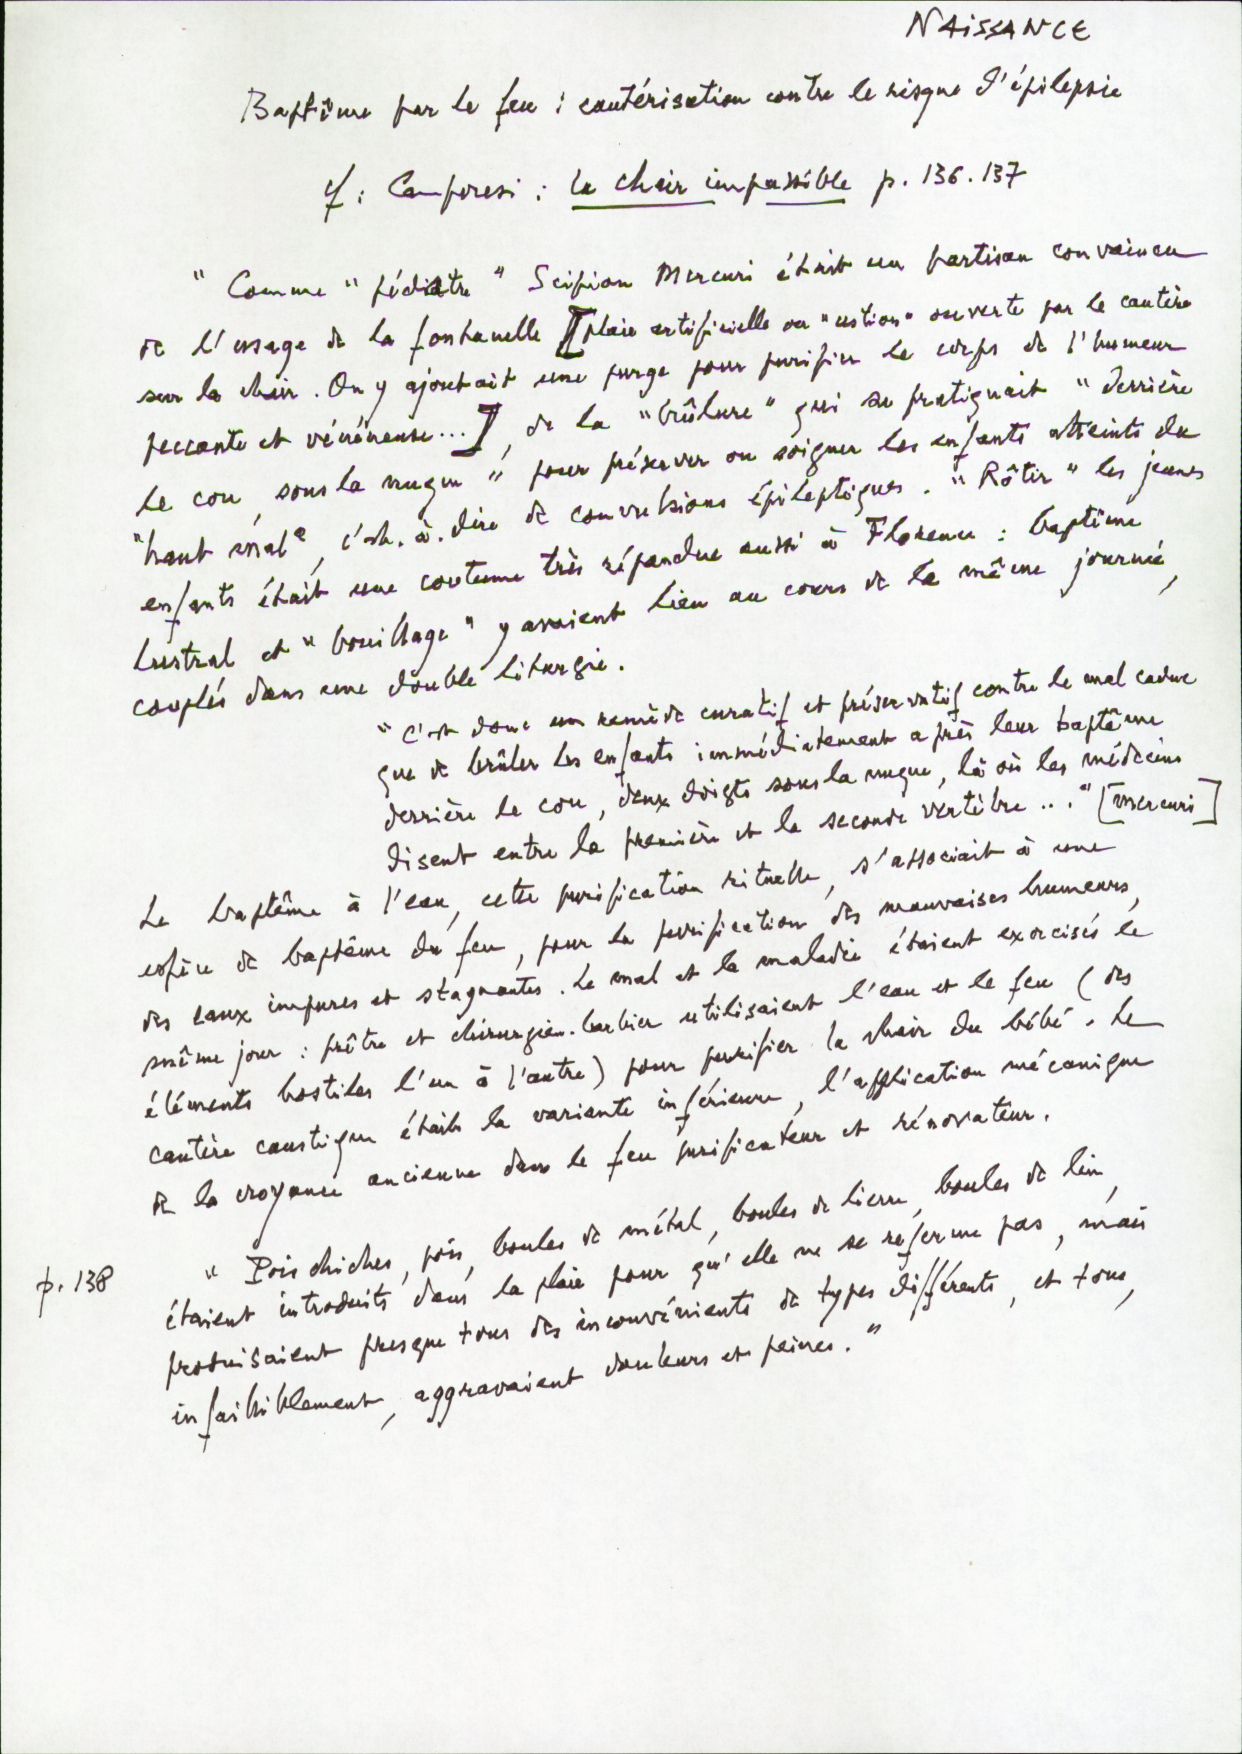 NAISSANCE
Baptême par le feu : cautérisation contre le risque d'épilepsie
cf : Camporesi : la chair impassible p. 136.137
" Comme " pédiatre " Scipion Mercuri était un partisan convaincu
de l'usage de la fontanelle [ plaie artificielle ou "ustion" ouverte par le cautère
sur la chair. On y ajoutait une purge pour purifier le corps de l'humeur
peccante et vénéneuse... ], de la "brûlure" qui se pratiquait " derrière
le cou, sous la nuque " pour préserver ou soigner les enfants atteints du
"haut mal", c'est.à.dire de convulsions épileptiques. "Rôtir" les jeunes
enfants était une coutume très répandue aussi à Florence : baptême
lustral et "bouillage" y avaient lieu au cours de la même journée,
couplés dans une double liturgie.
" C'est donc un remède curatif et préservatif contre le mal caduc
que de brûler les enfants immédiatement après leur baptême
derrière le cou, deux doigts sous la nuque, là où les médecins
disent entre la première et la seconde vertèbre ..." [Mercuri]
Le baptême à l'eau, cette purification rituelle, s'associait à une
espèce de baptême du feu, pour la purification des mauvaises humeurs,
des eaux impures et stagnantes. Le mal et la maladie étaient exorcisés le
même jour : prêtre et chirurgien.barbier utilisaient l'eau et le feu ( des
éléments hostiles l'un à l'autre) pour purifier la chair du bébé. Le
cautère caustique était la variante inférieure, l'application mécanique
de la croyance ancienne dans le feu purificateur et rénovateur.
" Pois chiches, pois, boules de métal, boules de lierre, boules de lin,
p. 138
étaient introduits dans la plaie pour qu'elle ne se referme pas, mais
produisaient presque tous des inconvénients de types différents, et tous,
infailliblement, aggravaient douleurs et peines."